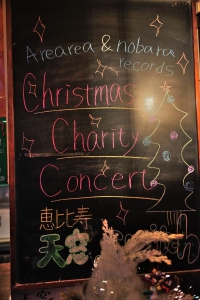 Arearea & nobara
records
Christmas
Charity
Concert
恵比寿
天空